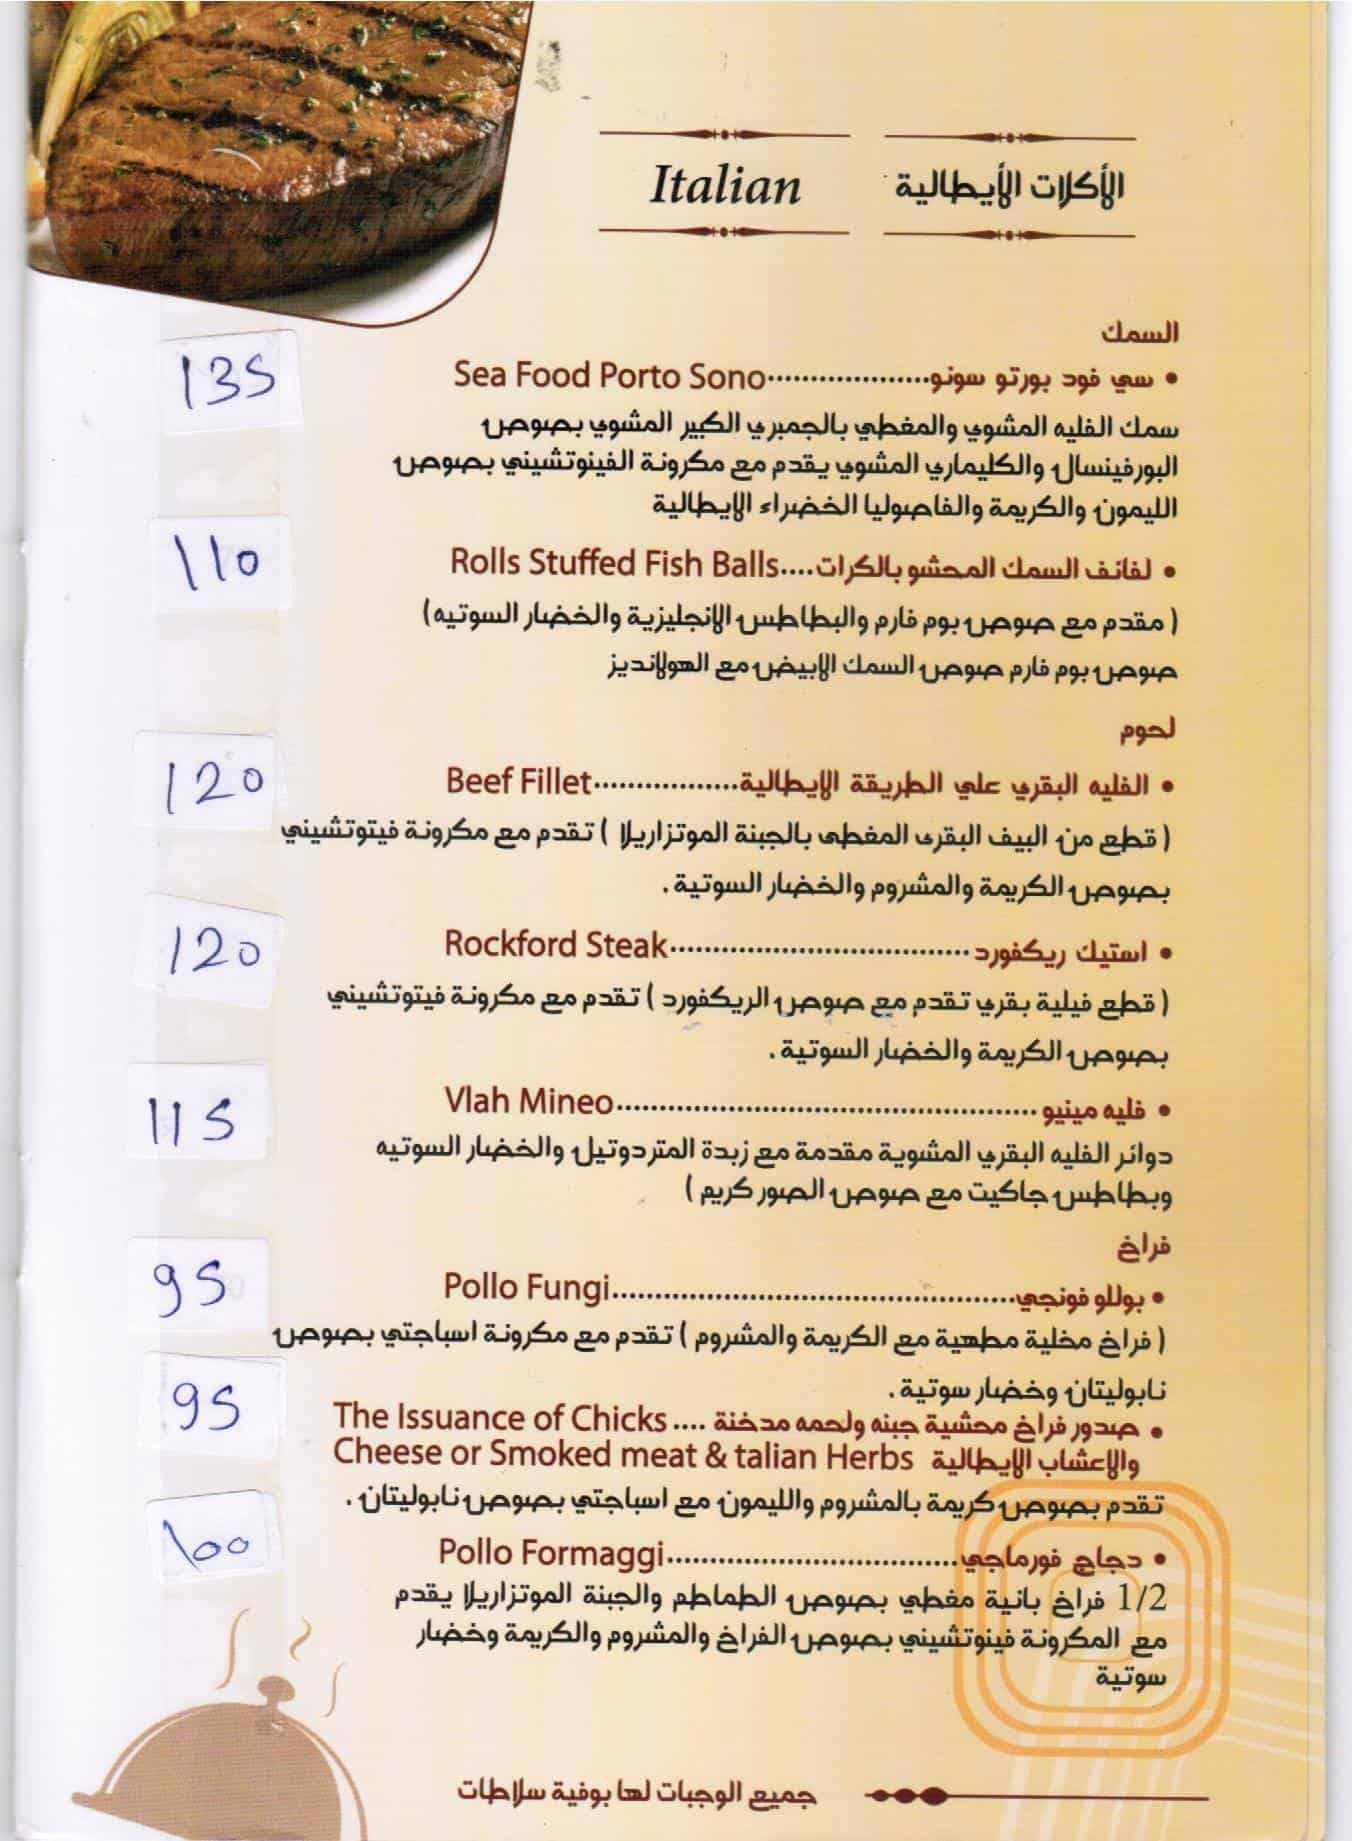 الأكلات الأيطالية
Italian
السمك
• سي فود بورتو سونو..................Sea Food Porto Sono
135
سمك الفليه المشوي والمغطي بالجمبري الكبير المشوي بصوص
البورفينسال والكليماري المشوي يقدم مع مكرونة الفينوتشيني بصوص
الليمون والكريمة والفاصوليا الخضراء الايطالية
• لفائف السمك المحشو بالكرات....Rolls Stuffed Fish Balls
110
( مقدم مع صوص بوم فارم والبطاطس الانجليزية والخضار السوتيه)
صوص بوم فارم صوص السمك الابيض مع الهولانديز
لحوم
• الفليه البقري علي الطريقة الايطالية.................Beef Fillet
120
( قطع من البيف البقرى المغطى بالجبنة الموتزاريلا ) تقدم مع مكرونة فيتوتشيني
بصوص الكريمة والمشروم والخضار السوتية .
• استيك ريكفورد...................................Rockford Steak
120
( قطع فيلية بقري تقدم مع صوص الريكفورد ) تقدم مع مكرونة فيتوتشيني
بصوص الكريمة والخضار السوتية .
• فليه مينيو.................................................Vlah Mineo
115
دوائر الفليه البقري المشوية مقدمة مع زبدة المتردوتيل والخضار السوتيه
وبطاطس جاكيت مع صوص الصور كريم )
فراخ
• بوللو فونجي...............................................Pollo Fungi
95
( فراخ مخلية مطهية مع الكريمة والمشروم ) تقدم مع مكرونة اسباجتي بصوص
نابوليتان وخضار سوتية .
• صدور فراخ محشية جبنه ولحمه مدخنة ....The Issuance of Chicks
95
والاعشاب الايطالية Cheese or Smoked meat & talian Herbs
تقدم بصوص كريمة بالمشروم والليمون مع اسباجتي بصوص نابوليتان .
• دجاج فورماجي..................................Pollo Formaggi
100
1/2 فراخ بانية مغطي بصوص الطماطم والجبنة الموتزاريلا يقدم
مع المكرونة فينوتشيني بصوص الفراخ والمشروم والكريمة وخضار
سوتية
جميع الوجبات لها بوفية سلاطات